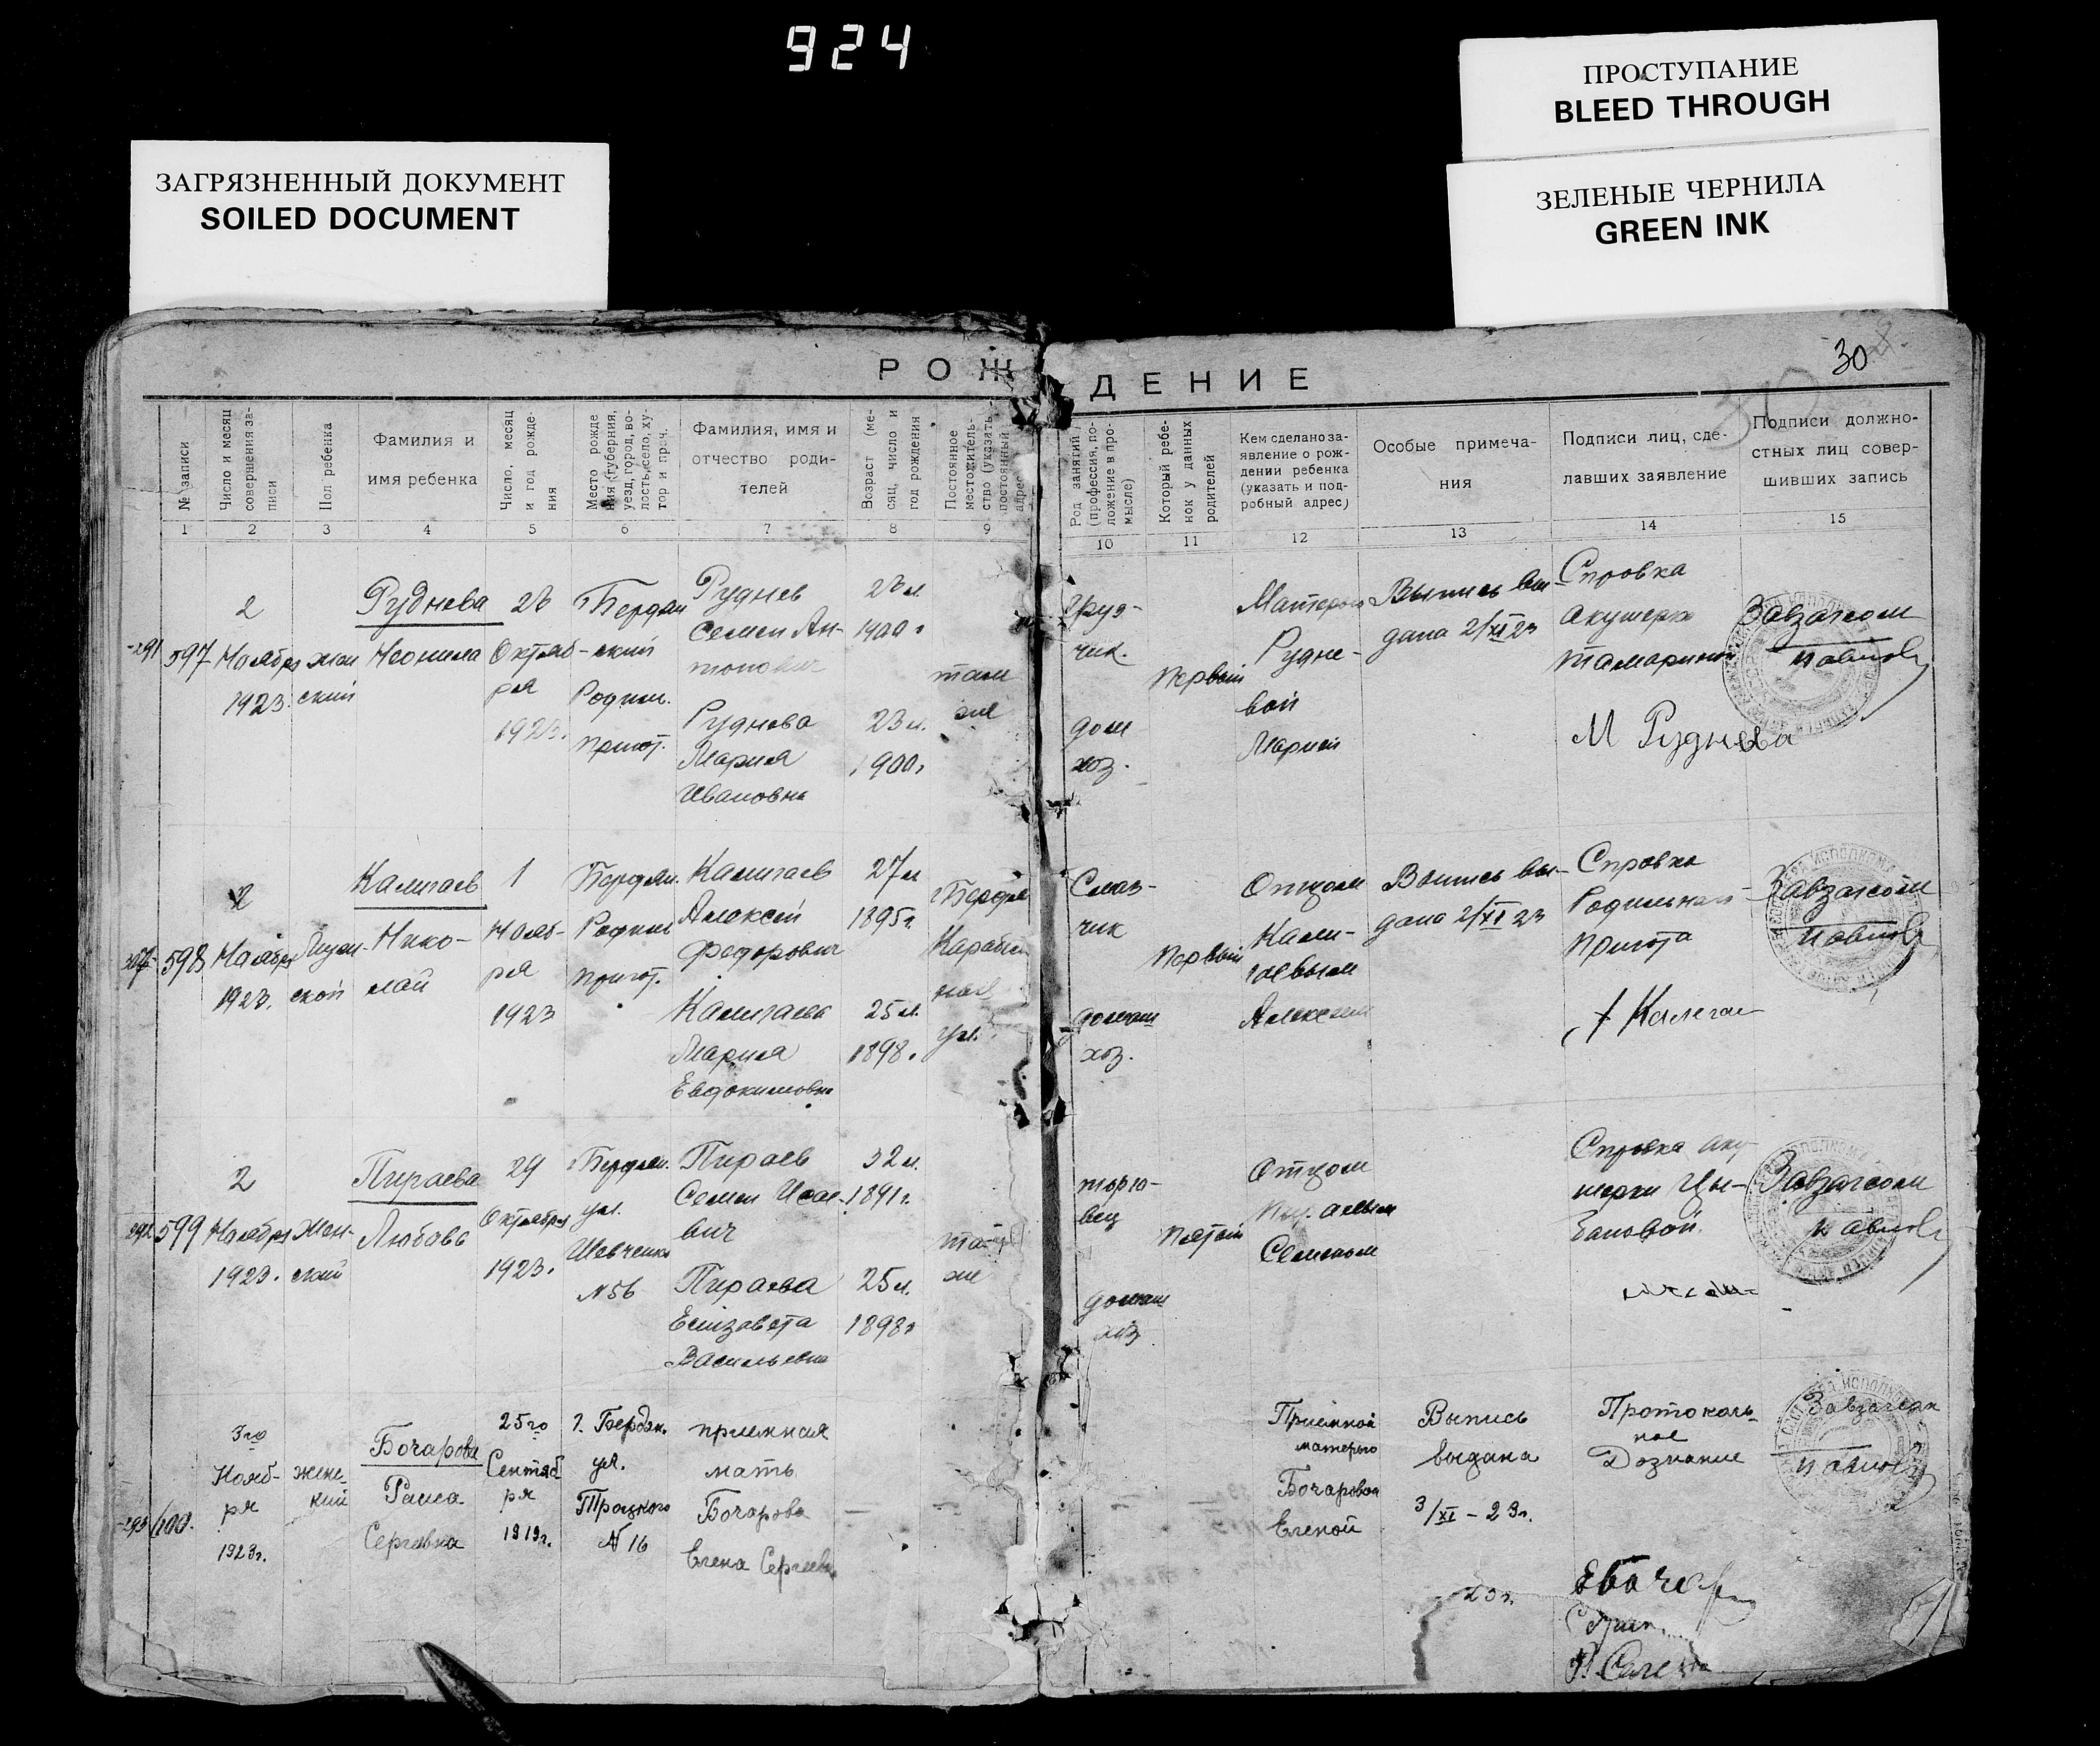 924
ПРОСТУПАНИЕ
BLEED THROUGH
ЗЕЛЕНЫЕ ЧЕРНИЛА
GREEN INK
ЗАГРЯЗНЕННЫЙ ДОКУМЕНТ
SOILED DOCUMENT
30
РОЖДЕНИЕ
№ записи
Число и месяц
совершения за-
писи
Пол ребенка
Фамилия и
имя ребенка
Число, месяц
и год рожде-
ния
Место рожде
ния (губерния,
уезд, город, во-
лость, село, ху-
тор и проч.
Фамилия, имя и
отчество роди-
телей
Возраст (ме-
сяц, число и
год рождения
Постоянное
местожитель-
ство (указать
постоянный
адрес
Род занятий
(профессия, по-
ложение в про-
мысле)
Который ребе-
нок у данных
родителей
Кем сделано за-
явление о рож-
дении ребенка
(указать и под-
робный адрес)
Особые примеча-
ния
Подписи лиц, сде-
лавших заявление
Подписи должно-
стных лиц совер-
шивших запись
1 2 3 4 5 6 7 8 9 10 11 12 13 14 15
291
597
2
Ноября
1923.
жен
ский
Руднева
Неонила
28
Октяб-
ря
1923.
г Бердян
-ский
Родил.
приют.
Руднев
Семен Ан-
тонович
Руднева
Мария
Ивановна
1900 г
23 л.
1900 г
там
же
груз-
чик.
дом
хоз.
Первый
Матерью
Рудне-
вой
Марией
Выпись вы-
дана 2/XI 23
Справка
Акушерки
М Руднева
Завзагсом
598
2
Ноября
1923.
Калигаев
Нико-
лай
1
Нояб-
ря
1923
Бердян.
Родил
приют.
Калигаев
Алексей
Федорович
Калигаева
Мария
Евдокимовна
27 л
1895 г.
25 л.
1898 г
г Бердя
ул.
Смаз-
чик
домаш
хоз.
Первый
Отцом
Кали-
гаевым
Алексеем
Выпись вы-
дана 2/XI 23
Справка
Родильного
Приюта
Завзагсом
292
599
2
Ноября
1923.
Жен-
ский
Пираева
Любовь
29
Октября
1923.
г Бердян.
ул.
Шевченко
№ 56
Пираев
Семен Исае-
вич
Пираева
Елизавета
Васильевна
32 л.
1891 г.
25 л.
1898 г
там
же
торго-
вец
домаш
хоз
Пятый
Отцом
Пираевым
Семеном
Справка аку
шерки Цы-
бановой.
Завзагсом
293
600.
3го
Нояб-
ря
1923 г.
женс-
кий
Бочарова
Раиса
Сергеевна
25го
Сентяб
ря
1919 г.
г. Бердян.
ул.
Троцкого
№ 16
приемная
мать
Бочарова
Елена Сергеевн
Приемной
матерью
Бочаровой
Еленой
Выпись
выдана
3/XI – 23 г.
23 г.
Протоколь-
ное
Дознание
Завзагсом